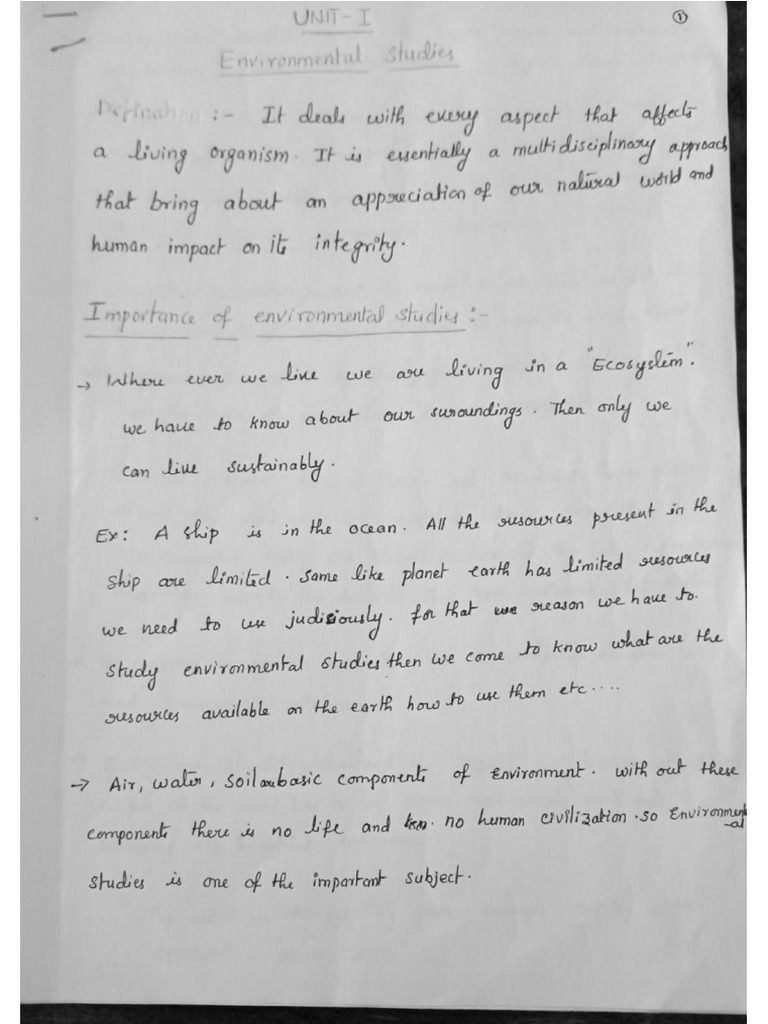 UNIT-I
①
Environmental Studies
Defination :- It deals with every aspect that affects
a living organism. It is essentially a multidisciplinary approach
that bring about an appreciation of our natural world and
human impact on its integrity.
Importance of environmental studies :-
→ Where ever we live we are living in a "Ecosystem".
we have to know about our suroundings. Then only we
can live sustainably.
Ex: A ship is in the ocean. All the resources present in the
ship are limited. Same like planet earth has limited resources
we need to use judiciously. for that reason we have to
study environmental studies then we come to know what are the
resources available on the earth how to use them etc....
→ Air, water, soil are basic components of Environment. with out these
components there is no life and no human civilization. so Environment-al
studies is one of the important subject.